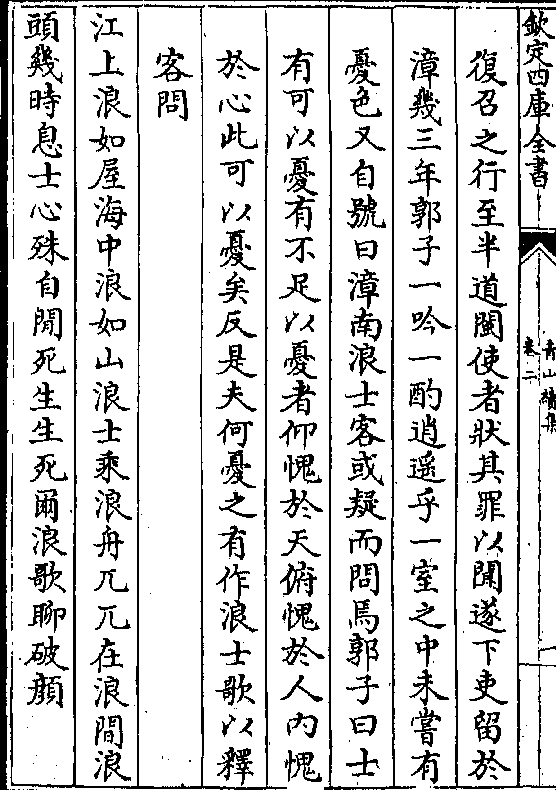 欽定四庫全書
青山續集
卷二
復召之行至半道閩使者狀其罪以聞遂下吏留於
漳幾三年郭子一吟一酌逍遙乎一室之中未嘗有
憂色又自號曰漳南浪士客或疑而問焉郭子曰士
有可以憂有不足以憂者仰愧於天俯愧於人内愧
於心此可以憂矣反是夫何憂之有作浪士歌以釋
客問
江上浪如屋海中浪如山浪士乘浪舟兀兀在浪間浪
頭幾時息士心殊自閒死生生死爾浪歌聊破顔